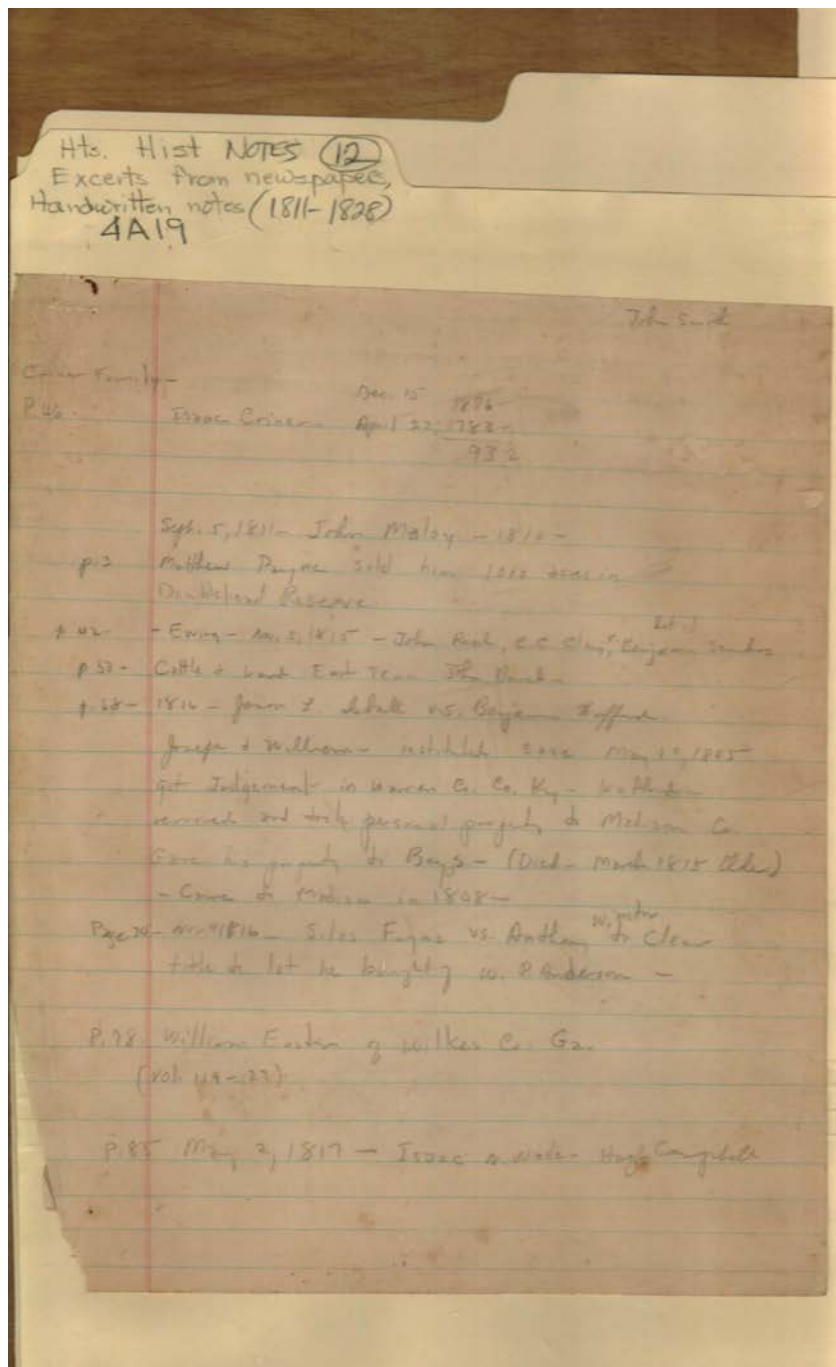 Hts. Hist NOTES (12)
Excerts from newspapers,
Handwritten notes (1811-1828)
4A19
John Smith
Criner Family-
Dec. 15 1876
P.46. Isaac Criner - April 22, 1783 -
93
Sept. 5, 1811 - John Maloy - 1810 -
p.2 Matthew Payne sold him 1000 acres in
Reserve
p 42 - Ewing - 1815 - John Read, C.C. Clay, Benjamin
p 50 - Cattle & East Tenn John
p 68 - 1816 - James vs. Benjamin
Joseph & William - instituted May 1805
got Judgement in Warren Co. Ky -
removed and took personal property to Madison Co.
Gave his property to Boys - (Died - March 1815
- Came to Madison in 1808 -
Page 70 - Nov 4 1816 - Silas vs Anthony to Clear
title to lot he bought of W. P. Anderson -
P.78. William of Wilkes Co. Ga.
(Vol.
P.85 May 2, 1817 - Isaac Hugh Campbell